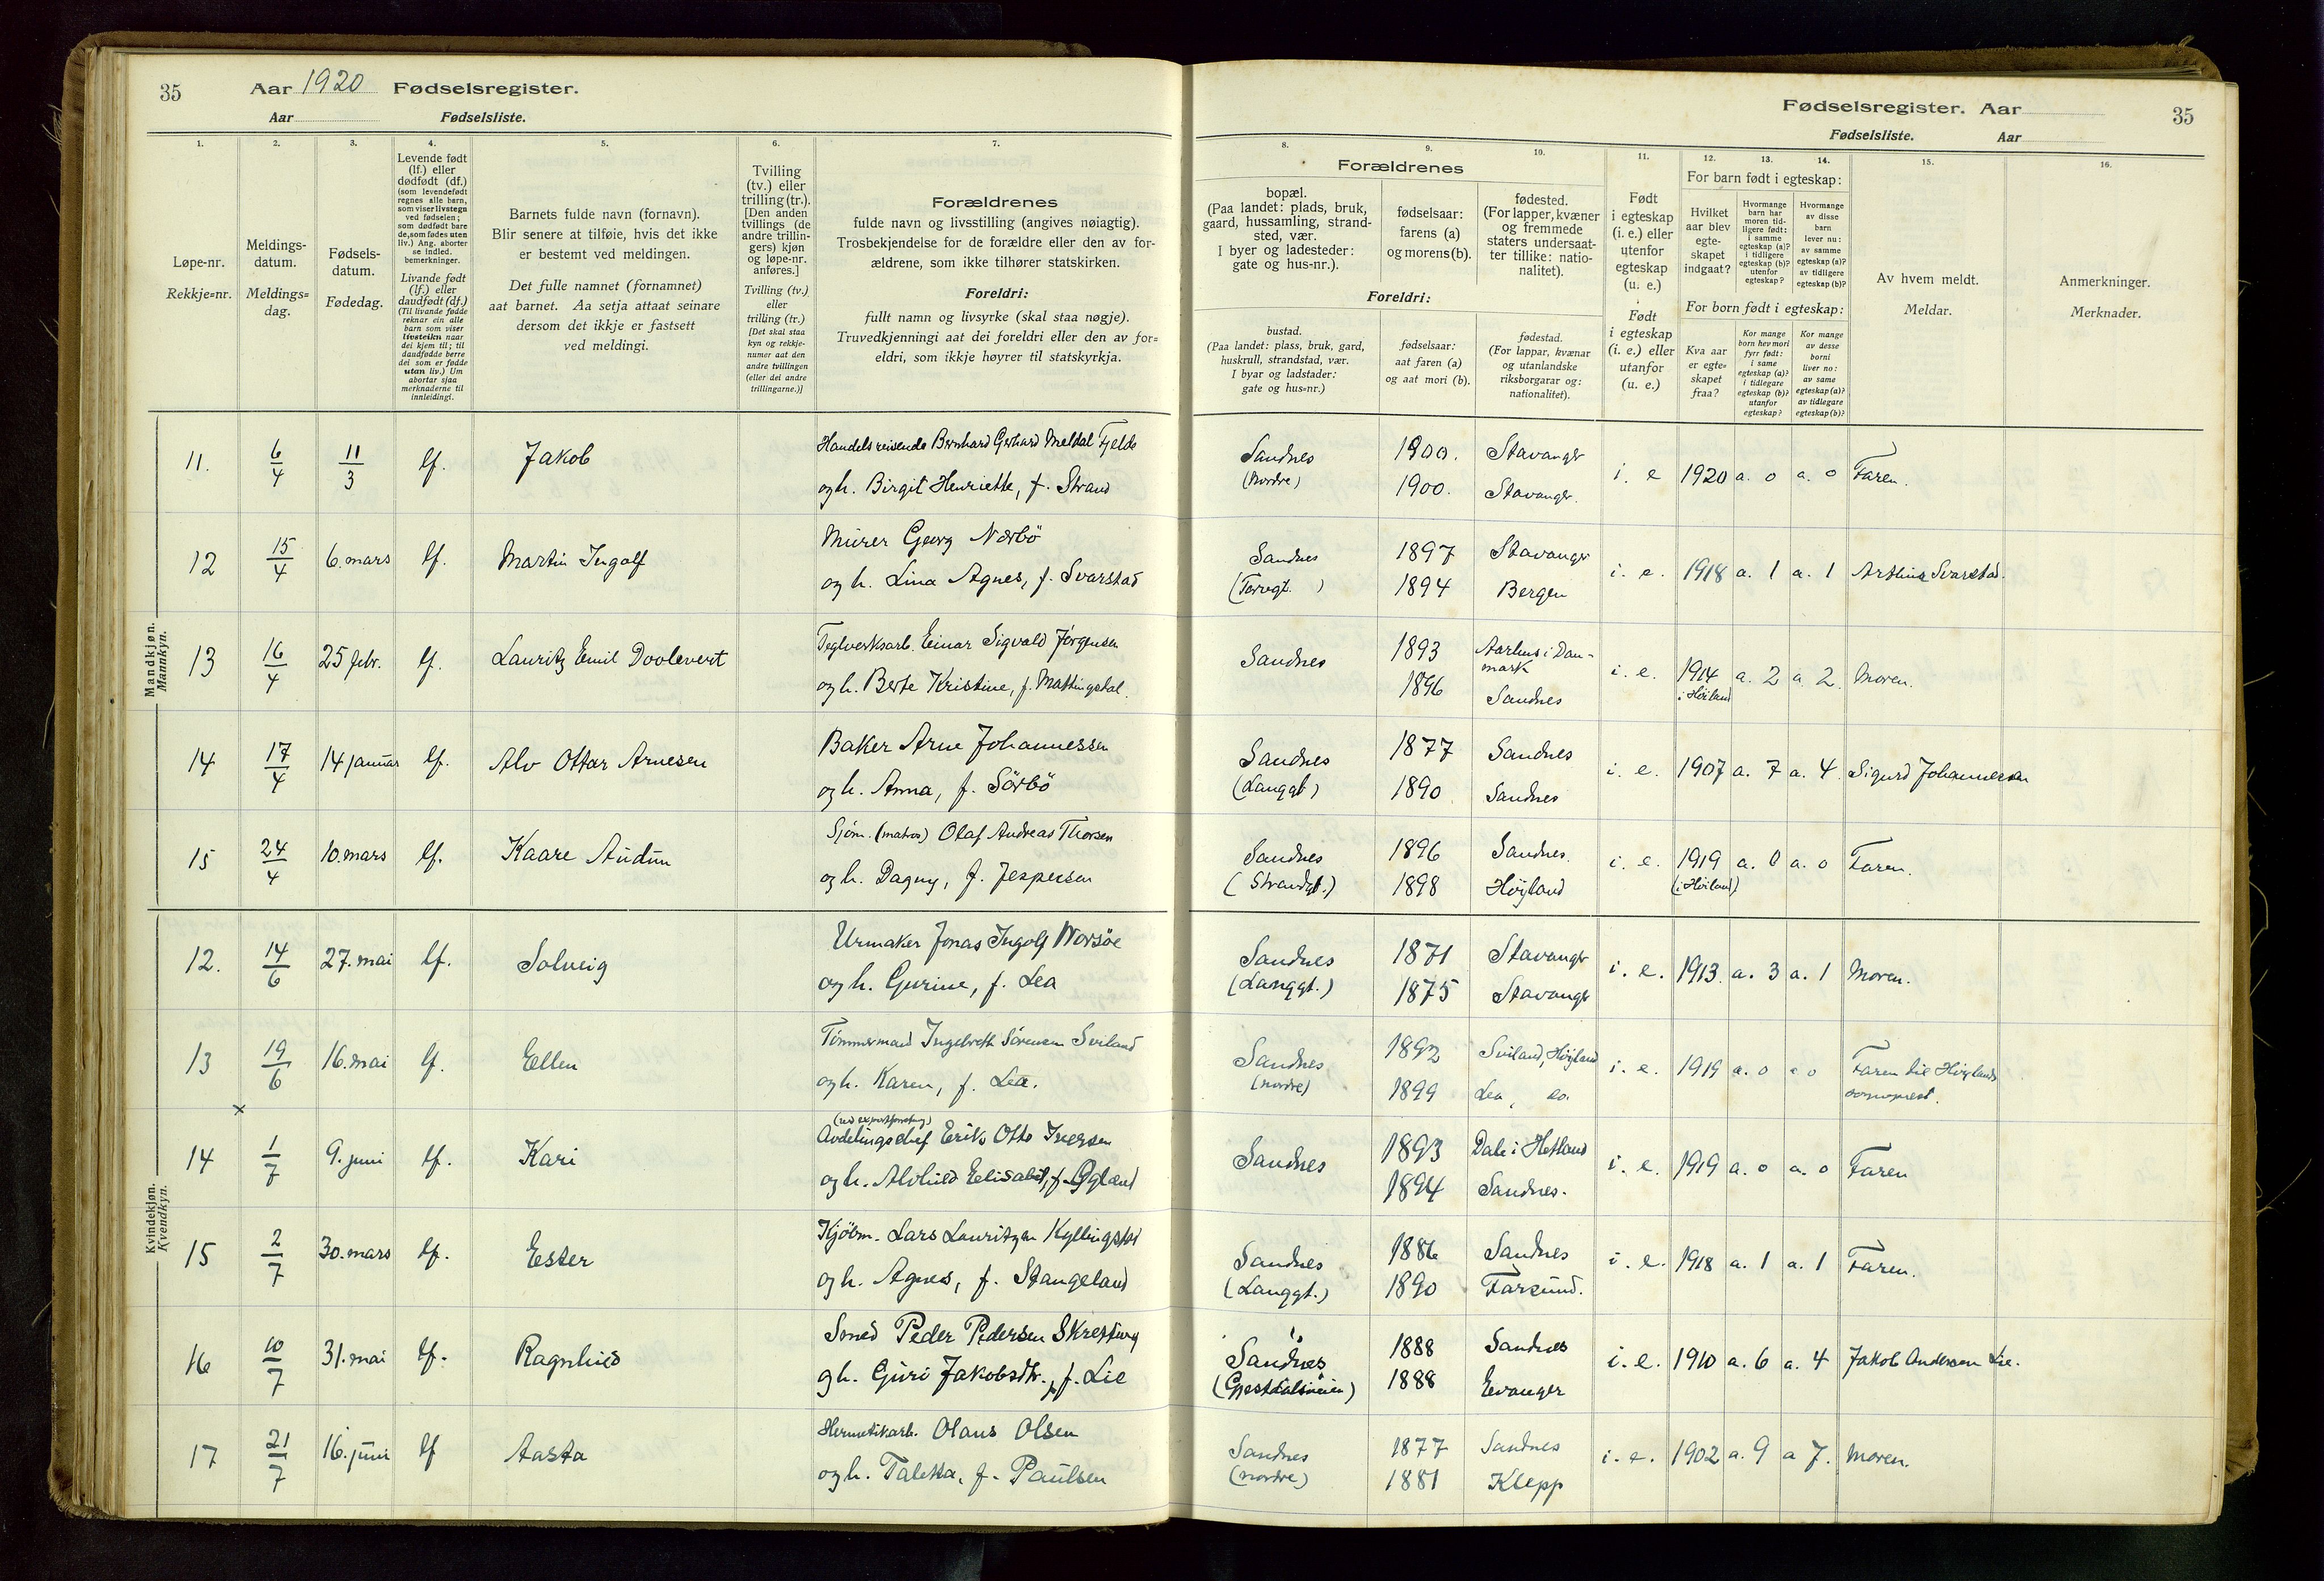 35 Aar 1920 Fødselsregister.
Aar Fødselsliste.
1. 2. 3. 4. 5. 6. 7.
Løpe-nr.
Rekkje=nr.
Meldings-
datum.
Meldings=
dag.
Fødsels-
datum.
Fødedag.
Levende født
(lf.) eller
dødfødt (df.)
(som levendefødt
regnes alle barn,
som viser livstegn
ved fødselen;
som dødfødt bare
de, som fødes uten
liv.) Ang. aborter
se indled.
bemerkninger.
Livande født
(lf.) eller
daudfødt (df.)
(Til livande fødde
reknar ein alle
barn som viser
livsteikn naar
dei kjem til; til
daudfødde berre
dei som er fødde
utan liv.) Um
abortar sjaa
merknaderne til
innleidingi.
Barnets fulde navn (fornavn).
Blir senere at tilføie, hvis det ikke
er bestemt ved meldingen.
Det fulle namnet (fornamnet)
aat barnet. Aa setja attaat seinare
dersom det ikkje er fastsett
ved meldingi.
Tvilling
(tv.) eller
trilling (tr.).
[Den anden
tvillings (de
andre trillin-
gers) kjøn
og løpe-nr.
anføres.]
Tvilling (tv.)
eller
trilling (tr.)
[Det skal staa
kyn og rekkje-
numer aat den
andre tvillingen
(eller dei andre
trillingarne.)]
Forældrenes
fulde navn og livsstilling (angives nøiagtig).
Trosbekjendelse for de forældre eller den av for-
ældrene, som ikke tilhører statskirken.
Foreldri:
fullt namn og livsyrke (skal staa nøgje).
Truvedkjenningi aat dei foreldri eller den av for=
eldri, som ikkje høyrer til statskyrkja.
Mandkjøn.
Mannkyn.
11. 6/4 11/3 lf. Jakob Handelsreisende Bernhard Gerhard Meldal Fjelde
og h. Birgit Henriette, f. Strand
12 15/4 6. mars lf. Martin Ingolf Murer Georg Nærbö
og h. Lina Agnes, f. Svarstad
13 16/4 25 febr. lf. Lauritz Emil Doolevert Teglverksarb. Einar Sigvald Jørgensen
og h. Berte Kristine, f. Mattingsdal.
14 17/4 14 januar lf. Alv Ottar Arnesen Baker Arne Johannessen
og h. Anna, f. Sörbö
15 24/4 10. mars lf. Kaare Audun Sjöm. (matros) Olaf Andreas Thorsen
og h. Dagny, f. Jespersen
Kvindekjøn.
Kvendkyn.
12. 14/6 27. mai lf. Solveig Urmaker Jonas Ingolf Norsöe
og h. Gurine, f. Lea
13 19/6 16. mai lf. Ellen Tömmermand Ingebreth Sörensen Sviland
og h. Karen, f. Lea.
×
14 1/7 9. juni lf. Kari Avdelingschef Erik Otto Iversen
og h. Alvhild Elisabet, f. Øgland
15 2/7 30. mars lf. Ester Kjöbm. Lars Lauritzen Kyllingstad
og h. Agnes, f. Stangeland
16 10/7 31. mai lf. Ragnhild Smed Peder Pedersen Skretting
og h. Guri Jakobsdtr., f. Lie
17 21/7 16. juni lf Aasta Hermetikarb. Olaus Olsen
og h. Taletta, f. Paulsen
Fødselsregister. Aar 35
Fødselsliste. Aar
8. 9. 10. 11. 12. 13. 14. 15. 16.
Forældrenes
bopæl.
(Paa landet: plads, bruk,
gaard, hussamling, strand-
sted, vær.
I byer og ladesteder:
gate og hus-nr.).
fødselsaar:
farens (a)
og morens (b).
fødested.
(For lapper, kvæner
og fremmede
staters undersaat-
ter tillike: natio-
nalitet).
Foreldri:
bustad.
(Paa landet: plass, bruk, gard,
huskrull, strandstad, vær.
I byar og ladstader:
gate og hus=nr.)
fødselsaar:
aat faren (a)
og aat mori (b).
fødestad.
(For lappar, kvænar
og utanlandske
riksborgarar og:
nationalitet).
Født
i egteskap
(i. e.) eller
utenfor
egteskap
(u. e.)
Født
i egteskap
(i. e.) eller
utanfor
(u. e.)
For barn født i egteskap:
Hvilket
aar blev
egte-
skapet
indgaat?
Hvormange
barn har
moren tid-
ligere født:
i samme
egteskap (a)?
i tidligere
egteskap (b)?
utenfor
egteskap?
Hvormange
av disse
barn
lever nu:
av samme
egteskap (a)?
av tidligere
egteskap (b)?
For born født i egteskap:
Kva aar
er egte=
skapet
fraa?
Kor mange
born hev mori
fyrr født:
i same
egteskap (a)?
i tidlegare
egteskap (b)?
utanfor
egteskap?
Kor mange
av desse
borni
liver no:
av same
egteskap (a)?
av tidlegare
egteskap (b)?
Av hvem meldt.
Meldar.
Anmerkninger.
Merknader.
Sandnes 1900. Stavanger i. e 1920 a. 0 a. 0 Faren.
(Nordre) 1900. Stavanger.
Sandnes 1897 Stavanger i. e. 1918 a. 1 a. 1
(Torvgt. ) 1894 Bergen
Sandnes 1893 Aarhus i Dan-
mark i. e. 1914 a. 2 a. 2. Moren.
1896 Sandnes i Höiland
Sandnes 1877 Sandnes i. e. 1907 a. 7 a. 4. Sigurd Johannessen
(Langgt) 1890 Sandnes
Sandnes 1896 Sandnes. i. e. 1919 a. 0 a. 0 Faren.
(Strandgt.) 1898 Höyland (i Höiland)
Sandnes 1871 Stavanger i. e. 1913. a. 3 a. 1 Moren.
(Langgt.) 1875 Stavanger
Sandnes 1892 Sviland, Höyland i. e. 1919 a. 0 a 0 Faren til Höylands
(nordre) 1899 Lea, do. sogneprest.
Sandnes 1893 Dale i Hetland i. e. 1919 a. 0 a. 0 Faren
1894 Sandnes.
Sandnes 1886 Sandnes i. e. 1918 a. 1 a. 1 Faren.
(Langgt.) 1890 Farsund.
Sandnes 1888 Sandnes i. e. 1910 a. 6 a. 4 Jakob Andersen Lie.
(Gjestdalsveien) 1888 Evanger
Sandnes 1877 Sandnes i. e. 1902 a. 9 a 7. Moren.
(nordre) 1881 Klepp